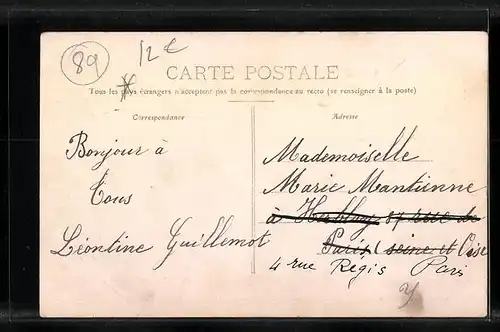 89
12 €
CARTE POSTALE
Tous les pays étrangers n'acceptent pas la correspondance au recto (se renseigner à la poste)
Correspondance
Adresse
Bonjour à
Tous
Léontine Guillemot
Mademoiselle
Marie Mantienne
à Herblay 87 rue de
Paris (seine et Oise
4 rue Regis Paris